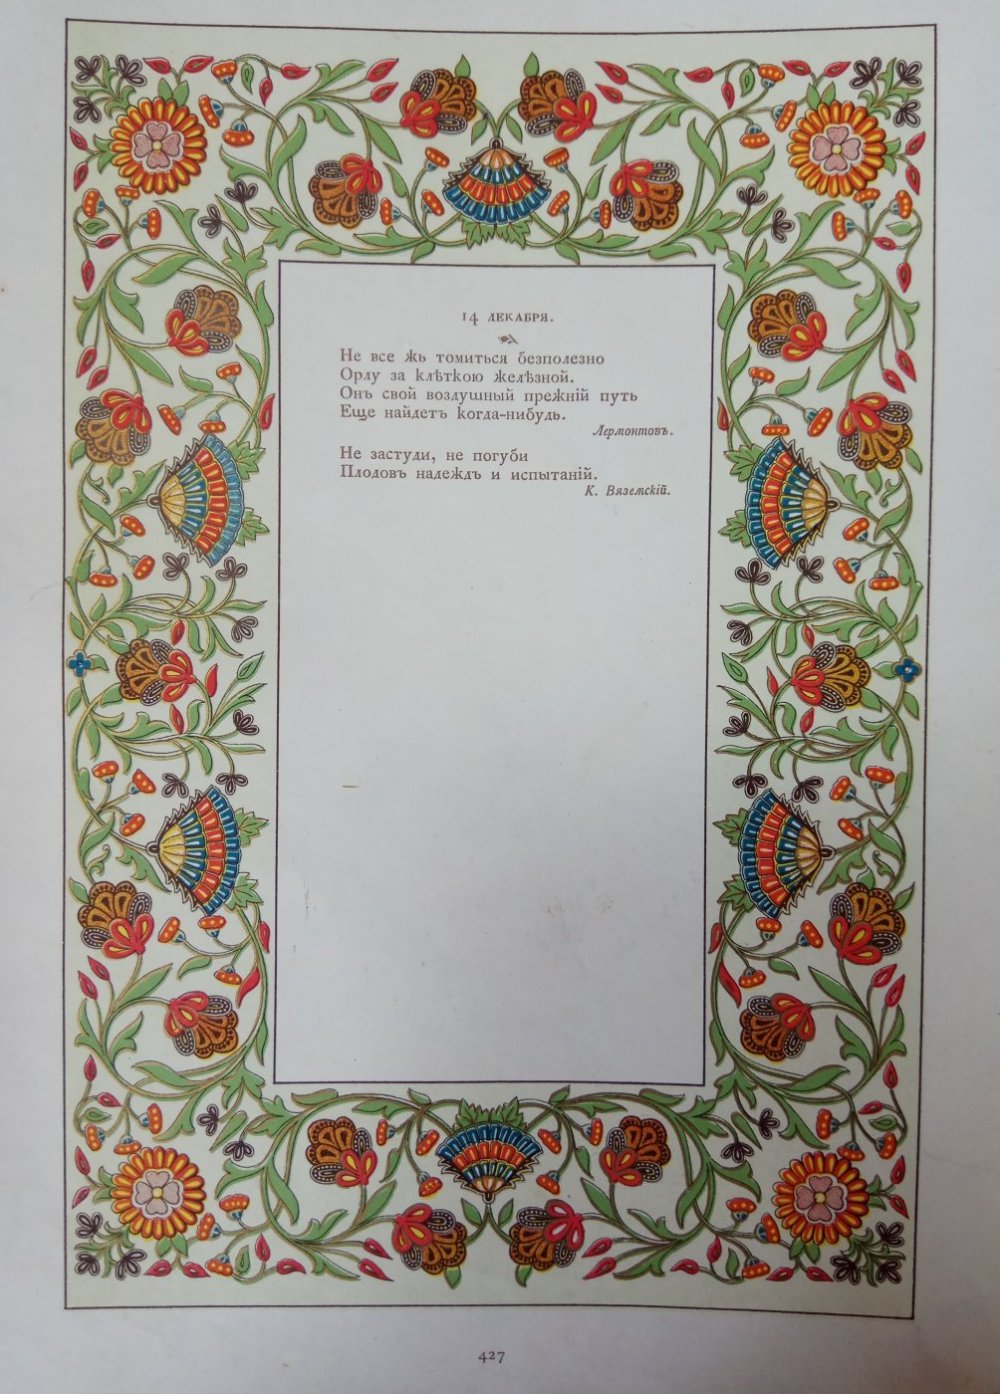 14 ДЕКАБРЯ.
Не все жь томиться безполезно
Орлу за клѣткою желѣзной.
Онъ свой воздушный прежній путь
Еще найдетъ когда-нибудь.
Лермонтовъ.
Не застуди, не погуби
Плодовъ надеждъ и испытаній.
К. Вяземскій.
427